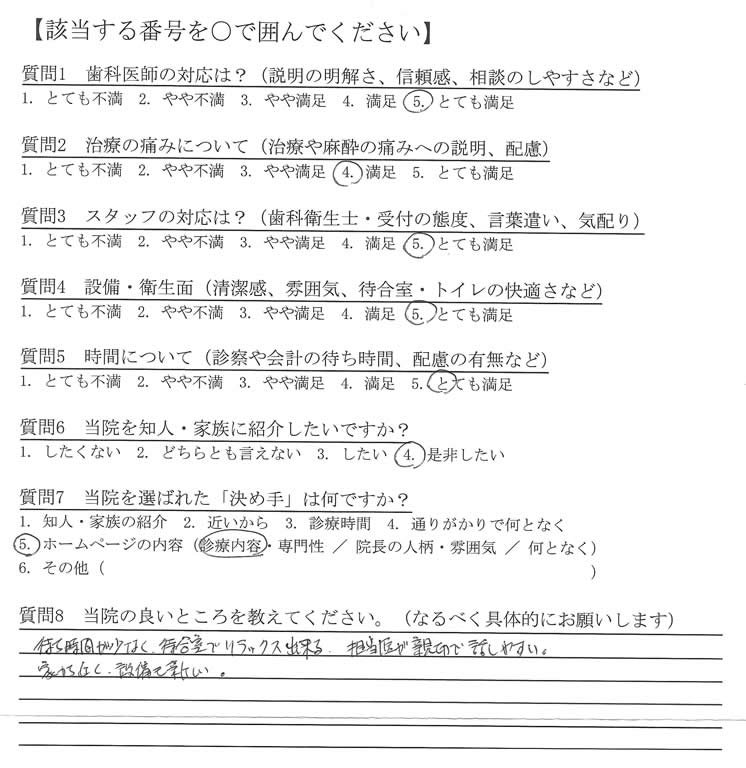 【該当する番号を○で囲んでください】
質問1 歯科医師の対応は？（説明の明解さ、信頼感、相談のしやすさなど）
1. とても不満 2. やや不満 3. やや満足 4. 満足 5. とても満足
質問2 治療の痛みについて（治療や麻酔の痛みへの説明、配慮）
1. とても不満 2. やや不満 3. やや満足 4. 満足 5. とても満足
質問3 スタッフの対応は？（歯科衛生士・受付の態度、言葉遣い、気配り）
1. とても不満 2. やや不満 3. やや満足 4. 満足 5. とても満足
質問4 設備・衛生面（清潔感、雰囲気、待合室・トイレの快適さなど）
1. とても不満 2. やや不満 3. やや満足 4. 満足 5. とても満足
質問5 時間について（診察や会計の待ち時間、配慮の有無など）
1. とても不満 2. やや不満 3. やや満足 4. 満足 5. とても満足
質問6 当院を知人・家族に紹介したいですか？
1. したくない 2. どちらとも言えない 3. したい 4. 是非したい
質問7 当院を選ばれた「決め手」は何ですか？
1. 知人・家族の紹介 2. 近いから 3. 診療時間 4. 通りがかりで何となく
5. ホームページの内容（診療内容・専門性 ／ 院長の人柄・雰囲気 ／ 何となく）
6. その他（ ）
質問8 当院の良いところを教えてください。（なるべく具体的にお願いします）
待ち時間が少なく、待合室でリラックス出来る。担当医が親切で話しやすい。
家から近く、設備も新しい。